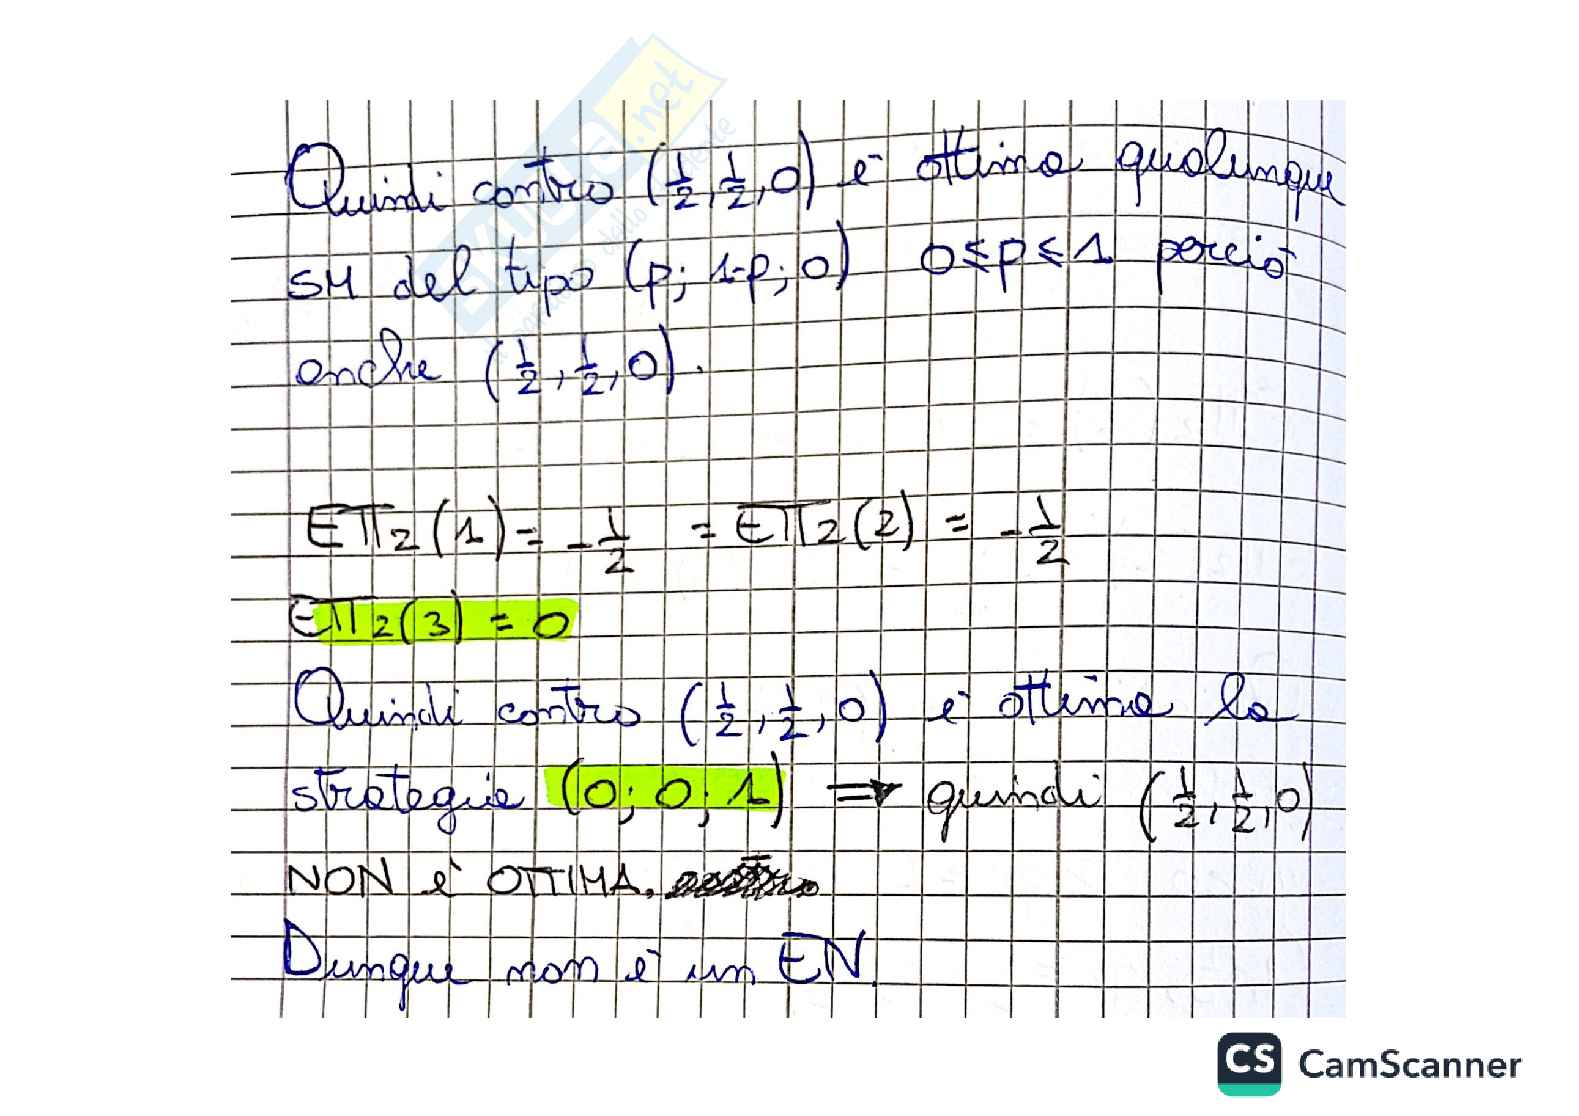 Quindi contro (1/2, 1/2, 0) è ottima qualunque
SM del tipo (p; 1-p; 0) 0≤p≤1 perciò
anche (1/2, 1/2, 0).
EΠ2(1) = -1/2 = EΠ2(2) = -1/2
EΠ2(3) = 0
Quindi contro (1/2, 1/2, 0) è ottima la
strategia (0; 0; 1) ⇒ quindi (1/2, 1/2, 0)
NON è OTTIMA.
Dunque non è un EN.
CS CamScanner